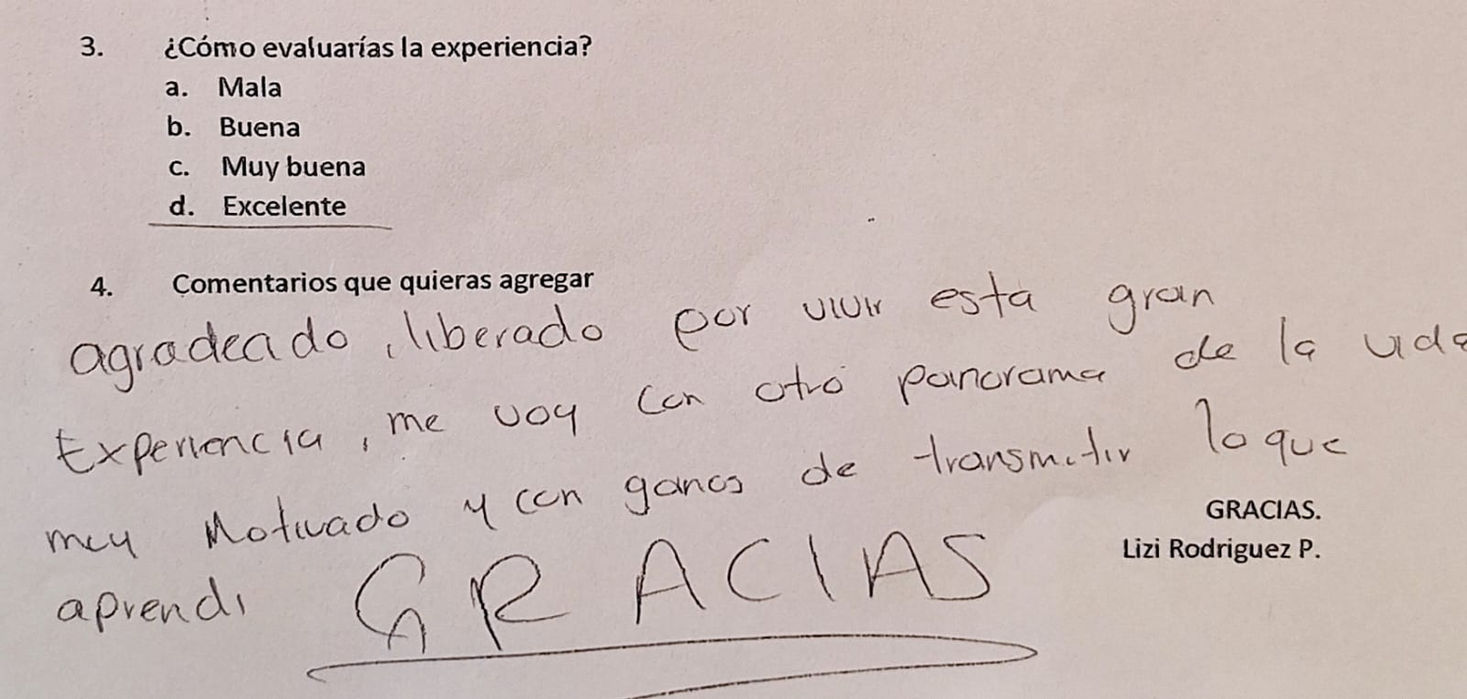 3. ¿Cómo evaluarías la experiencia?
a. Mala
b. Buena
c. Muy buena
d. Excelente
4. Comentarios que quieras agregar
agradecido, liberado por vivir esta gran
Experiencia, me voy con otro panorama de la vida
muy Motivado y con ganas de transmitir lo que
aprendi GRACIAS
GRACIAS.
Lizi Rodriguez P.